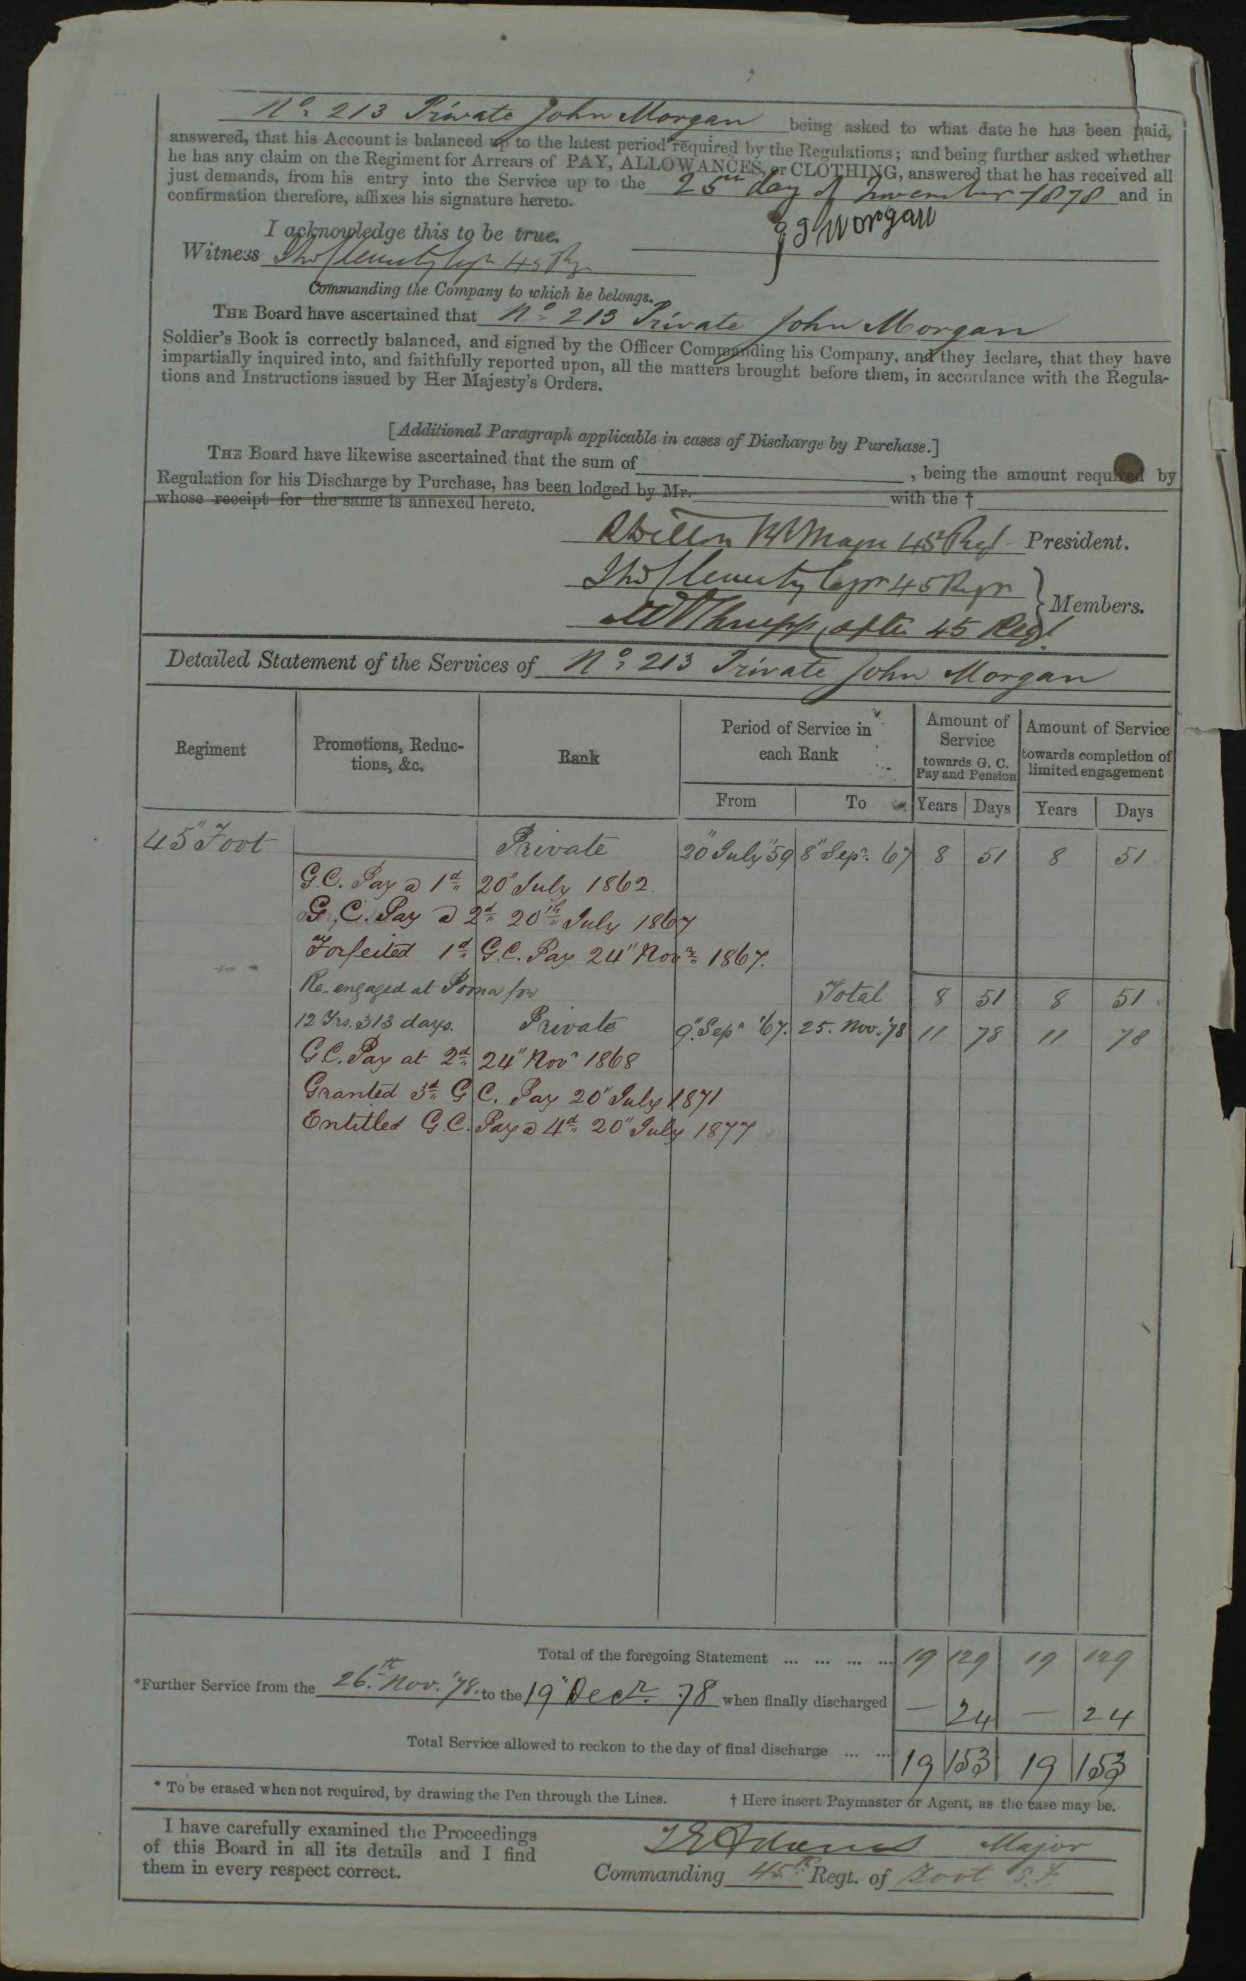 No. 213 Private John Morgan being asked to what date he has been paid,
answered, that his Account is balanced up to the latest period required by the Regulations; and being further asked whether
he has any claim on the Regiment for Arrears of PAY, ALLOWANCES, or CLOTHING, answered that he has received all
just demands, from his entry into the Service up to the 25th day of November 1878 and in
confirmation therefore, affixes his signature hereto.
J Morgan
I acknowledge this to be true.
Witness Capt 45 Rgt
Commanding the Company to which he belongs.
THE Board have ascertained that No. 213 Private John Morgan
Soldier's Book is correctly balanced, and signed by the Officer Commanding his Company, and they declare, that they have
impartially inquired into, and faithfully reported upon, all the matters brought before them, in accordance with the Regula-
tions and Instructions issued by Her Majesty's Orders.
[Additional Paragraph applicable in cases of Discharge by Purchase.]
THE Board have likewise ascertained that the sum of , being the amount required by
Regulation for his Discharge by Purchase, has been lodged by Mr.
whose receipt for the same is annexed hereto. with the †
Major 45 Regt President.
Capt 45 Regt
Members.
45 Regt.
Detailed Statement of the Services of No. 213 Private John Morgan
Regiment
Promotions, Reduc-
tions, &c.
Rank
Period of Service in
each Rank
From To
Amount of
Service
towards G. C.
Pay and Pension
Years Days
Amount of Service
towards completion of
limited engagement
Years Days
45" Foot Private 20" July "59 8" Sepr. 67 8 51 8 51
G.C. Pay @ 1d 20" July 1862.
G.C. Pay @ 2d 20th July 1867
Forfeited 1d G.C. Pay 24" Novr 1867.
Re-engaged at Poona for Total 8 51 8 51
12 Yrs. 313 days. Private 9" Sepr '67. 25. Nov. '78 11 78 11 78
G.C. Pay at 2d 24" Novr 1868
Granted 3d G.C. Pay 20" July 1871
Entitled G.C. Pay @ 4d 20" July 1877
Total of the foregoing Statement ... ... ... ... 19 129 19 129
*Further Service from the 26th Nov. '78. to the 19" Decr. 78 when finally discharged — 24 — 24
Total Service allowed to reckon to the day of final discharge ... ... 19 153 19 153
* To be erased when not required, by drawing the Pen through the Lines. † Here insert Paymaster or Agent, as the case may be.
I have carefully examined the Proceedings
of this Board in all its details and I find
them in every respect correct.
Adams Major
Commanding 45th Regt. of Foot S.F.